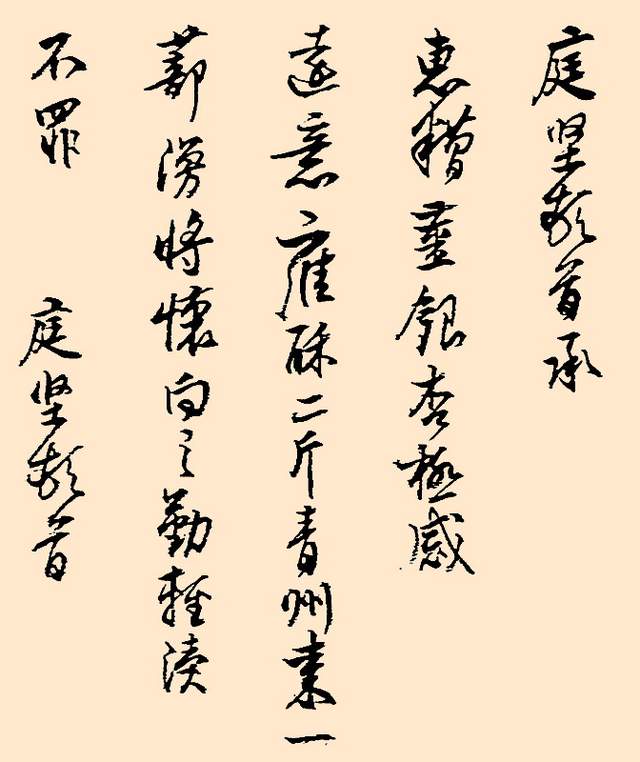 庭堅頓首承
惠糟薑銀杏極感
遠意雍酥二斤青州棗一
蔀漫將懷向之勤輕瀆
不罪 庭堅頓首